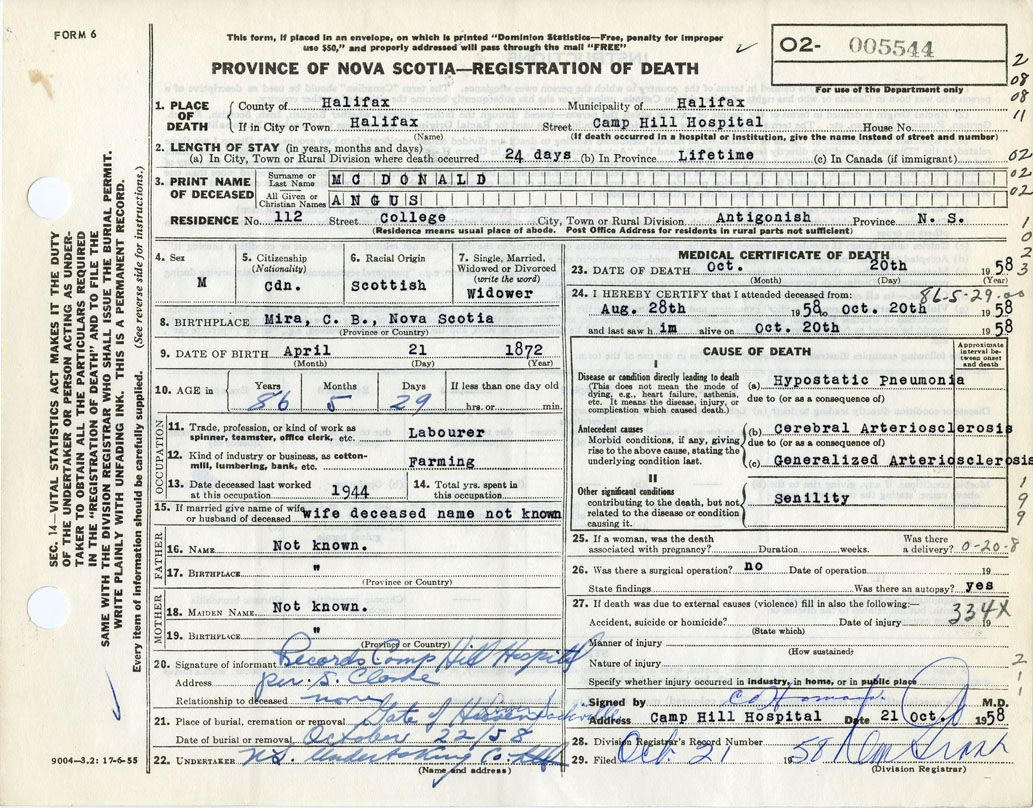 FORM 6
This form, if placed in an envelope, on which is printed "Dominion Statistics—Free, penalty for improper
use $50," and properly addressed will pass through the mail "FREE"
✓
02- 005544
For use of the Department only
PROVINCE OF NOVA SCOTIA—REGISTRATION OF DEATH
2
08
08
11
1. PLACE OF DEATH
County of Halifax Municipality of Halifax
If in City or Town Halifax Street Camp Hill Hospital House No.
(Name) (If death occurred in a hospital or institution, give the name instead of street and number)
2. LENGTH OF STAY (in years, months and days)
(a) In City, Town or Rural Division where death occurred 24 days (b) In Province Lifetime (c) In Canada (if immigrant)
02
02
02
3. PRINT NAME OF DECEASED
Surname or Last Name MC DONALD
All Given or Christian Names ANGUS
RESIDENCE No. 112 Street College City, Town or Rural Division Antigonish Province N. S.
(Residence means usual place of abode. Post Office Address for residents in rural parts not sufficient)
1
0
2
3
4. Sex M
5. Citizenship (Nationality) Cdn.
6. Racial Origin Scottish
7. Single, Married, Widowed or Divorced (write the word) Widower
8. BIRTHPLACE Mira, C. B., Nova Scotia
(Province or Country)
9. DATE OF BIRTH April 21 1872
(Month) (Day) (Year)
10. AGE in Years Months Days If less than one day old
86 5 29 hrs. or min.
OCCUPATION
11. Trade, profession, or kind of work as spinner, teamster, office clerk, etc. Labourer
12. Kind of industry or business, as cotton-mill, lumbering, bank, etc. Farming
13. Date deceased last worked at this occupation 1944
14. Total yrs. spent in this occupation
15. If married give name of wife or husband of deceased wife deceased name not known
FATHER
16. NAME Not known.
17. BIRTHPLACE "
(Province or Country)
MOTHER
18. MAIDEN NAME Not known.
19. BIRTHPLACE "
(Province or Country)
20. Signature of informant Records Camp Hill Hospital
Address per. S. Clarke
Relationship to deceased none
21. Place of burial, cremation or removal Gate of Heaven Lower Sackville
Date of burial or removal October 22/58
22. UNDERTAKER N.S. Undertaking Co.
(Name and address)
MEDICAL CERTIFICATE OF DEATH
23. DATE OF DEATH Oct. 20th 1958
(Month) (Day) (Year)
24. I HEREBY CERTIFY that I attended deceased from: 86-5-29.00
Aug. 28th 1958 to Oct. 20th 1958
and last saw h im alive on Oct. 20th 1958
CAUSE OF DEATH
Approximate interval between onset and death
I
Disease or condition directly leading to death
(This does not mean the mode of dying, e.g., heart failure, asthenia, etc. It means the disease, injury, or complication which caused death.)
(a) Hypostatic Pneumonia
due to (or as a consequence of)
Antecedent causes
Morbid conditions, if any, giving rise to the above cause, stating the underlying condition last.
(b) Cerebral Arteriosclerosis
due to (or as a consequence of)
(c) Generalized Arteriosclerosis
II
Other significant conditions
contributing to the death, but not related to the disease or condition causing it.
Senility
1
9
9
25. If a woman, was the death associated with pregnancy? Duration weeks. Was there a delivery? 0-20-8
26. Was there a surgical operation? no Date of operation 19
State findings Was there an autopsy? yes
27. If death was due to external causes (violence) fill in also the following:— 334X
Accident, suicide or homicide? Date of injury 19
(State which)
Manner of injury
(How sustained)
Nature of injury
Specify whether injury occurred in industry, in home, or in public place
2
1
1
Signed by M.D.
Address Camp Hill Hospital Date 21 Oct. 1958
28. Division Registrar's Record Number
29. Filed Oct. 21 1958
(Division Registrar)
SEC. 14—VITAL STATISTICS ACT MAKES IT THE DUTY
OF THE UNDERTAKER OR PERSON ACTING AS UNDER-
TAKER TO OBTAIN ALL THE PARTICULARS REQUIRED
IN THE "REGISTRATION OF DEATH" AND TO FILE THE
SAME WITH THE DIVISION REGISTRAR WHO SHALL ISSUE THE BURIAL PERMIT.
WRITE PLAINLY WITH UNFADING INK. THIS IS A PERMANENT RECORD.
Every item of information should be carefully supplied. (See reverse side for instructions.)
9004—3.2: 17-6-55